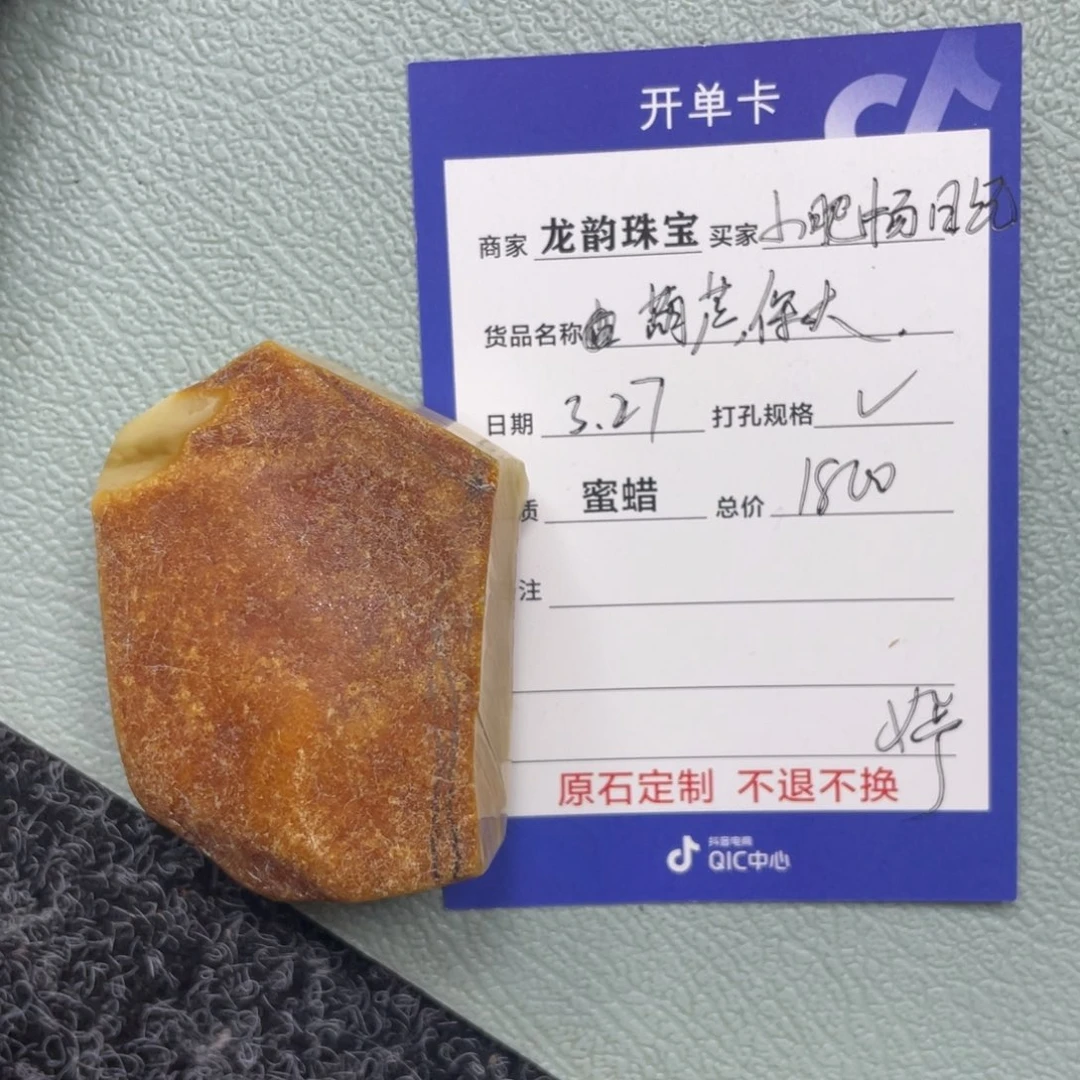 开单卡
商家 龙韵珠宝 买家 小肥肠日记
货品名称 葫芦,保大.
日期 3.27 打孔规格 ✓
质 蜜蜡 总价 1800
注
婷
原石定制 不退不换
抖音电商
QIC中心